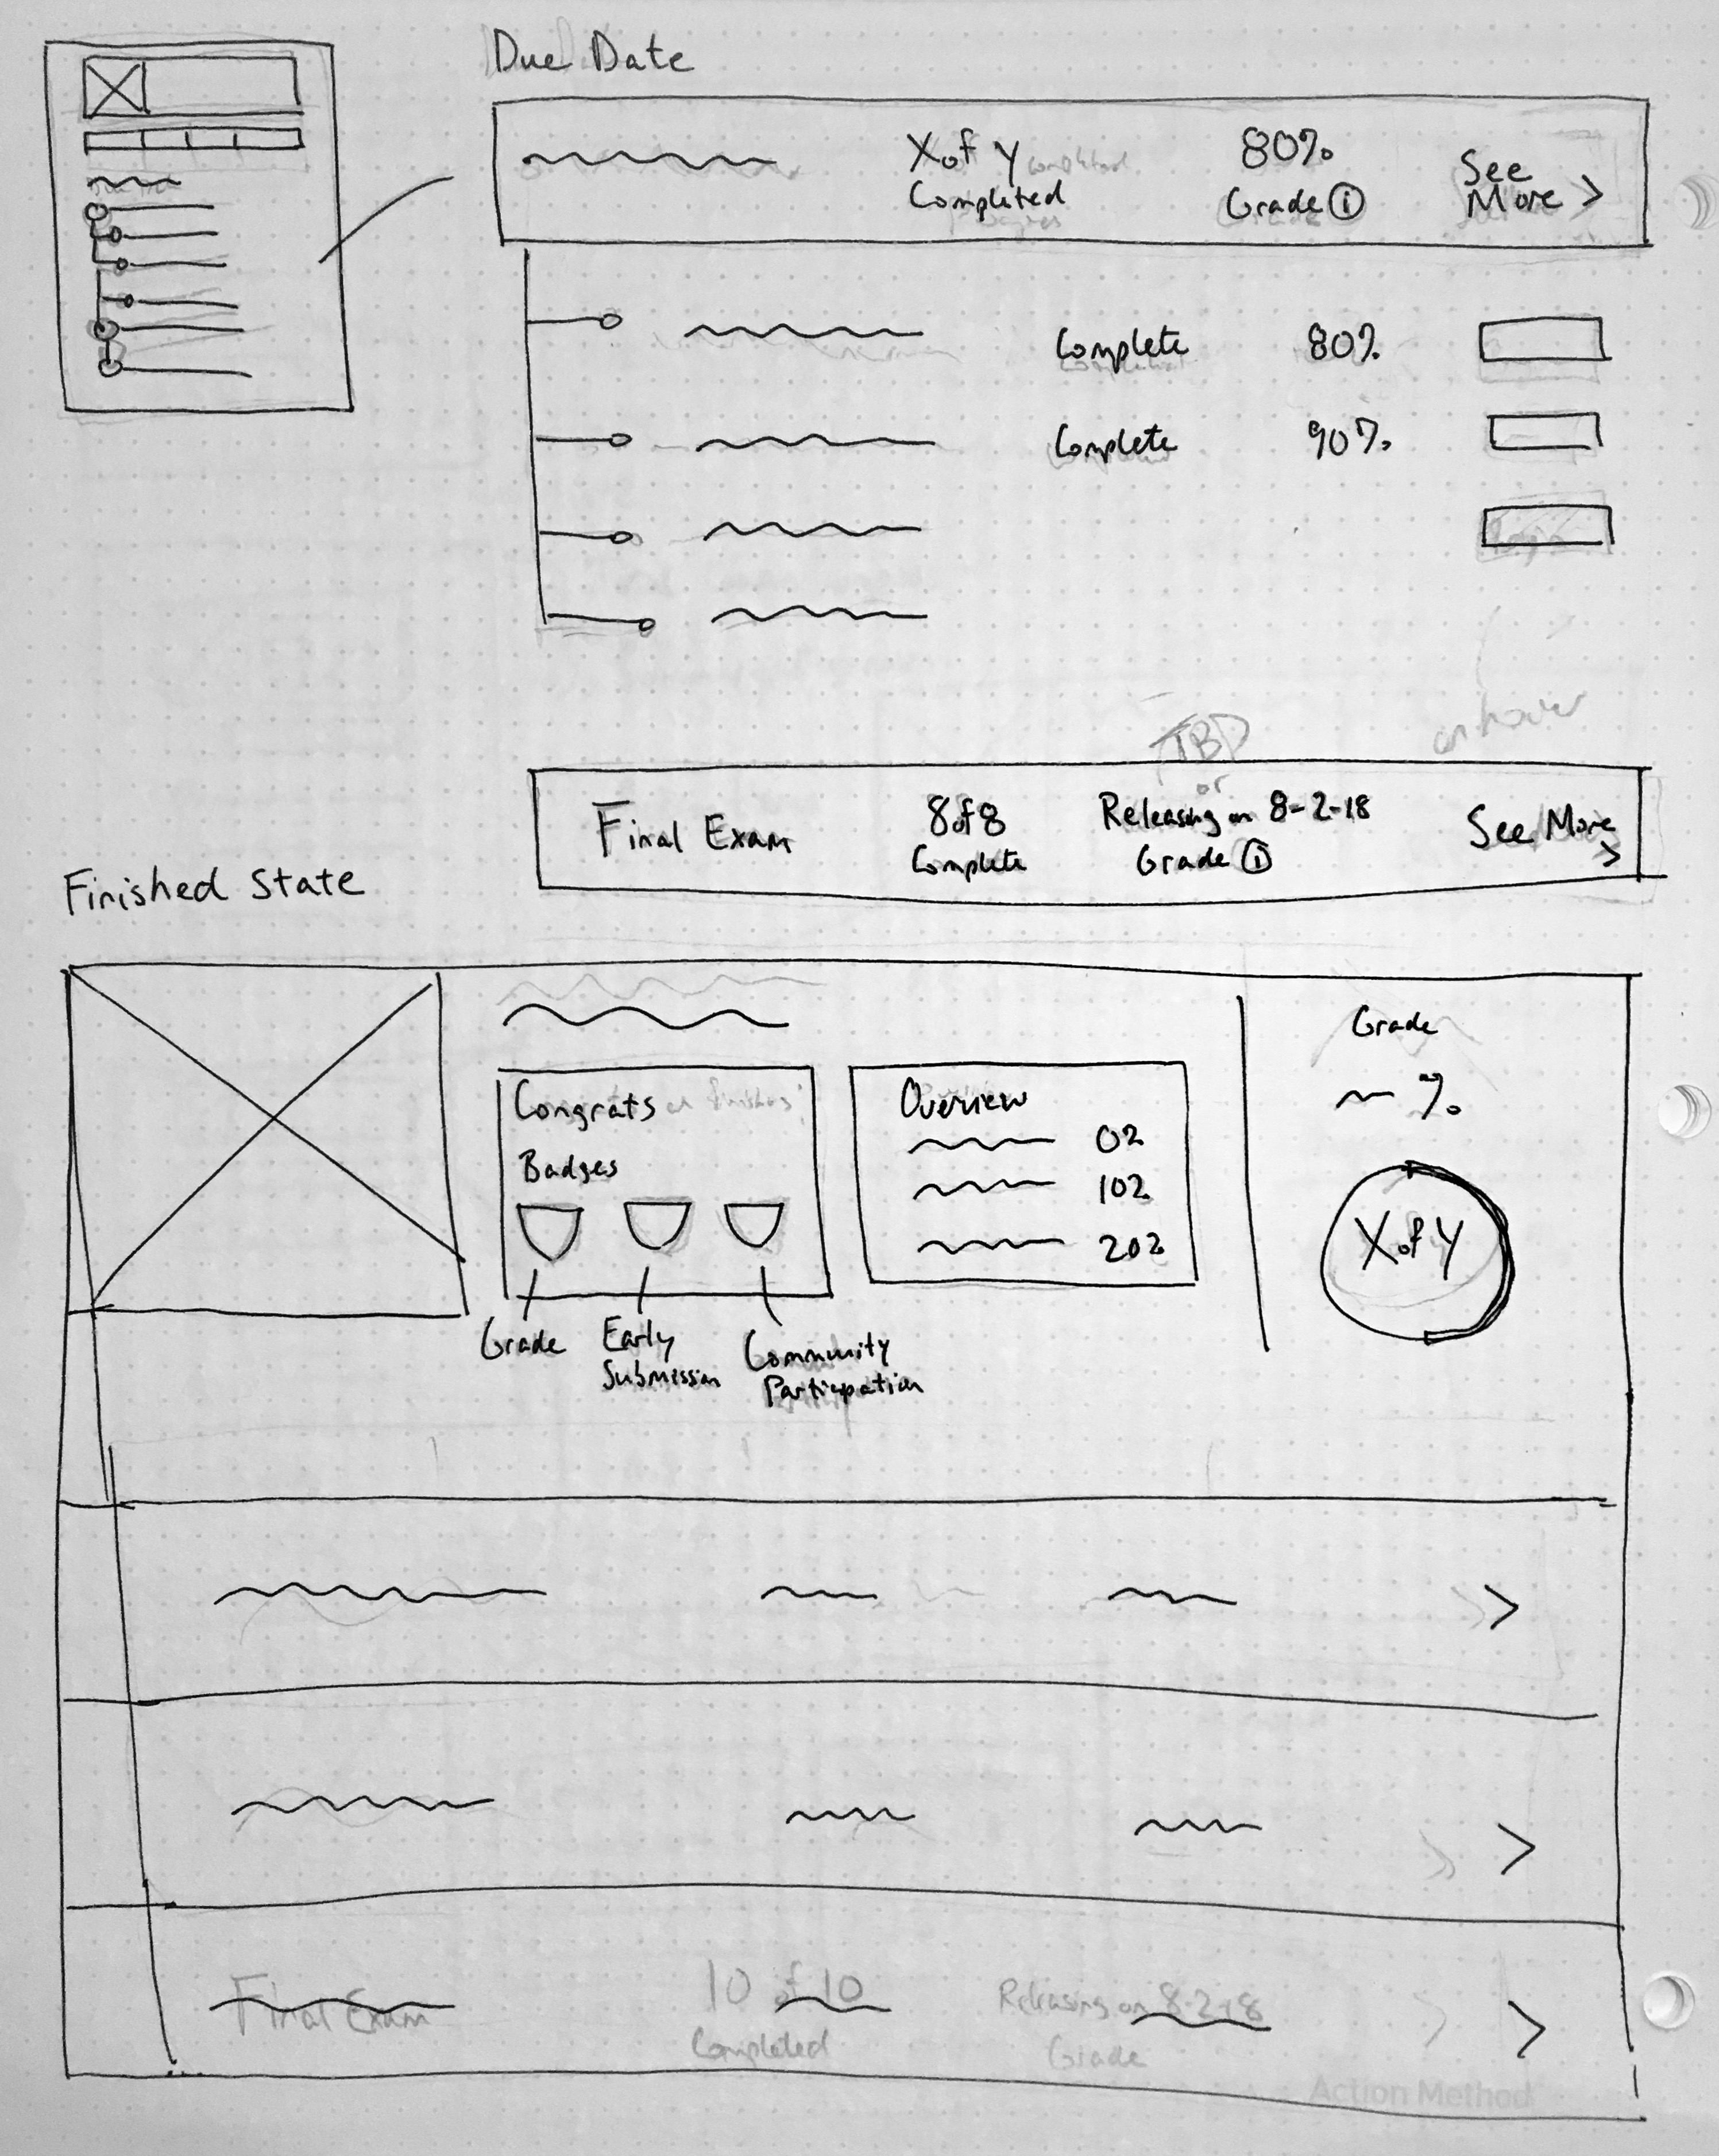 Due Date
X of Y completed
Completed
80%
Grade i
See
More >
Complete 80%
Complete 90%
TBD
or
on hover
Final Exam
8 of 8
Complete
Releasing on 8-2-18
Grade i
See More
>
Finished State
Congrats on finishing!
Badges
Grade
Early
Submission
Community
Participation
Overview
02
102
202
Grade
%
X of Y
>
>
Final Exam
10 of 10
Completed
Releasing on 8-2-18
Grade
>
Action Method